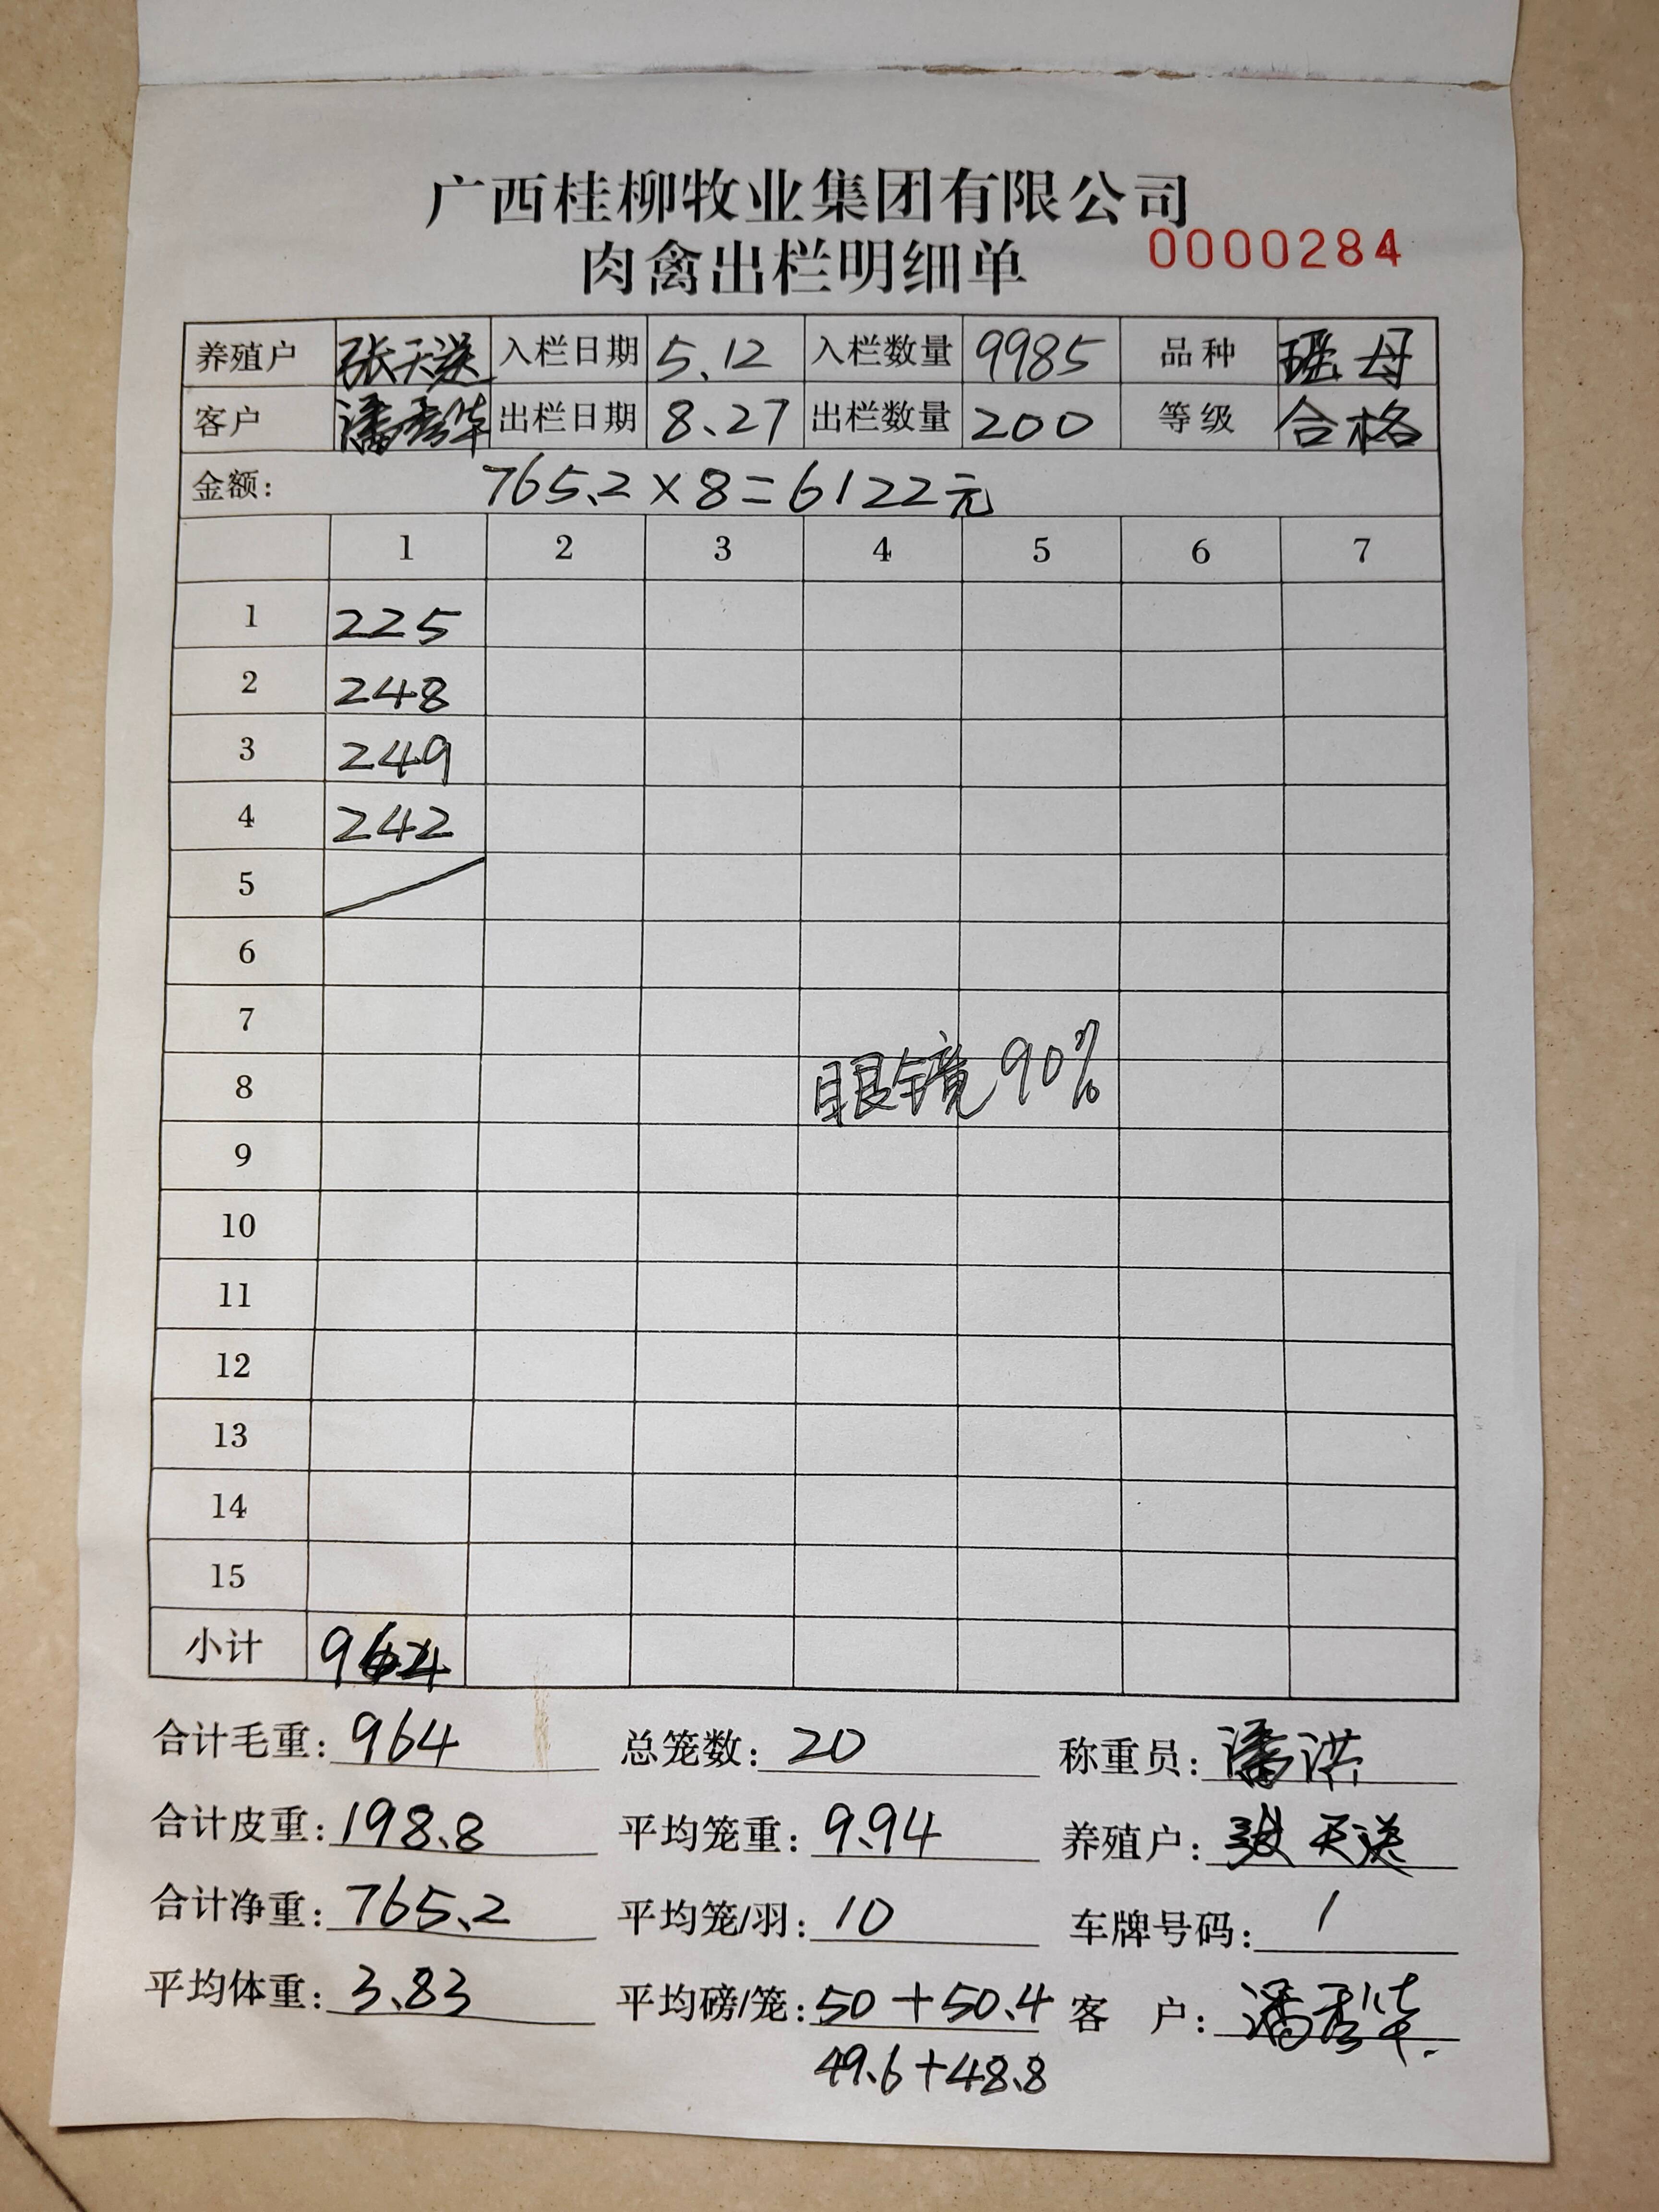 广西桂柳牧业集团有限公司
肉禽出栏明细单 0000284
养殖户 张天送 入栏日期 5.12 入栏数量 9985 品种 瑶母
客户 潘秀华 出栏日期 8.27 出栏数量 200 等级 合格
金额: 765.2×8=6122元
1 2 3 4 5 6 7
1 225
2 248
3 249
4 242
5
6
7
8 眼镜90%
9
10
11
12
13
14
15
小计 964
合计毛重: 964 总笼数: 20 称重员: 潘洪
合计皮重: 198.8 平均笼重: 9.94 养殖户: 张天送
合计净重: 765.2 平均笼/羽: 10 车牌号码: /
平均体重: 3.83 平均磅/笼: 50+50.4 客 户: 潘秀华
49.6+48.8